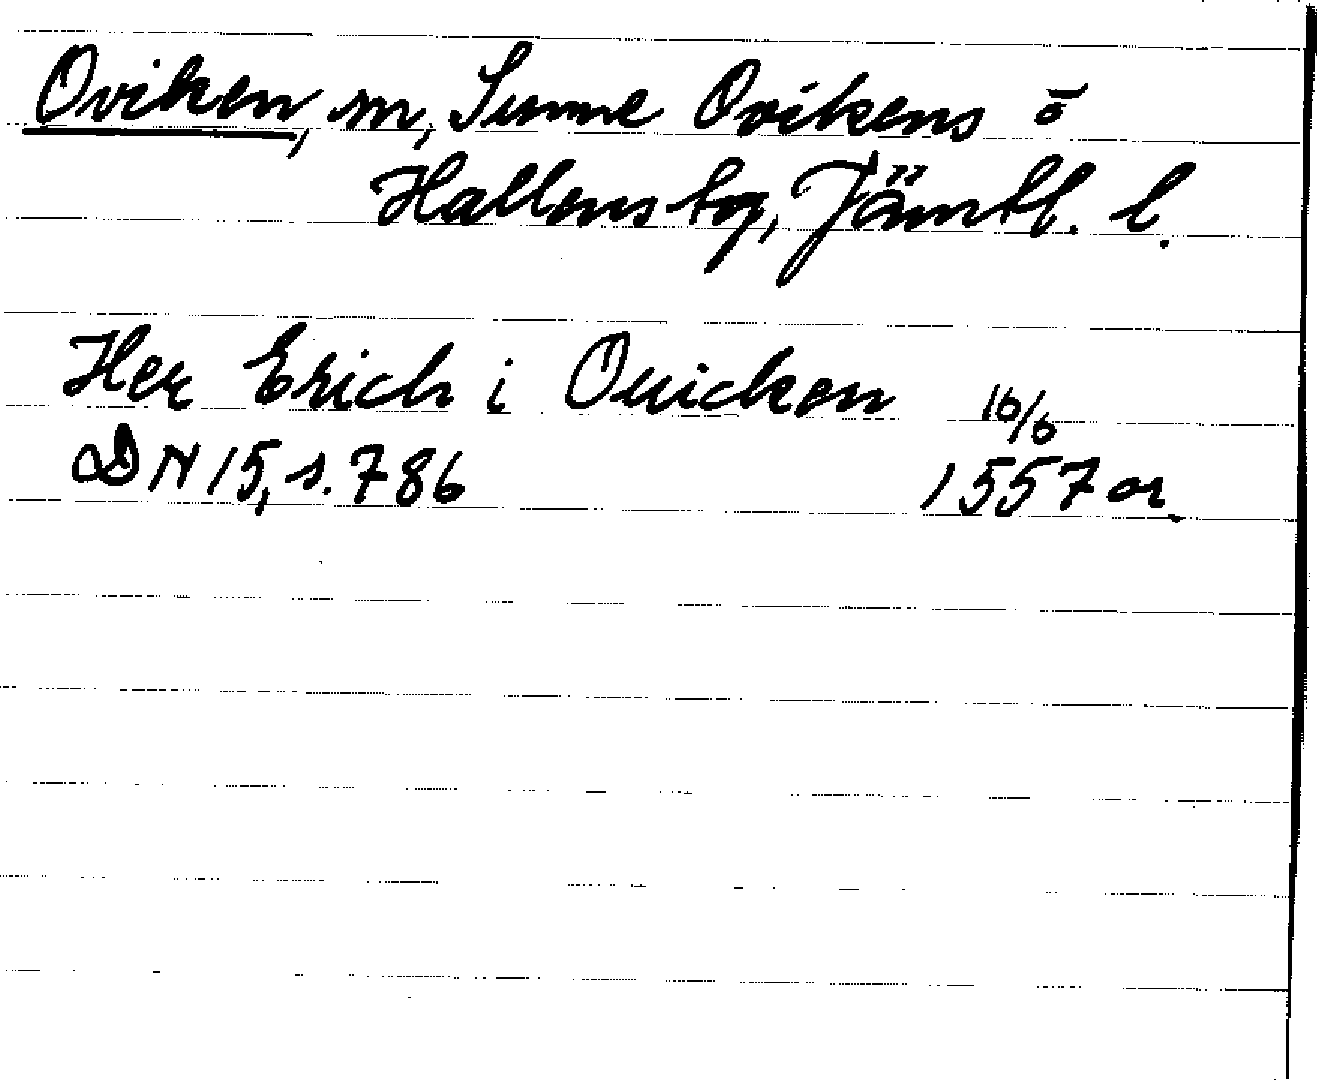 Oviken, sn, Sunne Ovikens o
Hallens tg, Jämtl. l.
Her Erich i Ouicken 16/6
DN 15, s. 786 1557 or.